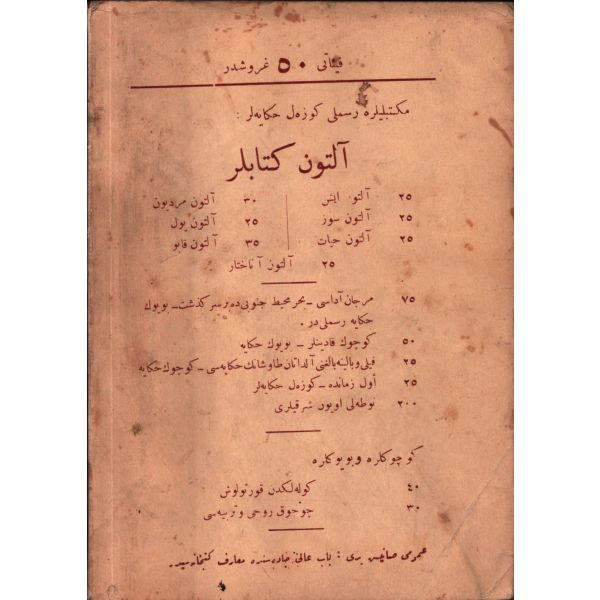 فیئاتی ۵۰ غروشدر
مکتبلیلره رسملی کوزەل حکایه‌لر :
آلتون کتابلر
۲۵ آلتون ایش
۳۰ آلتون مردیون
۲۵ آلتون سوز
۲۵ آلتون یول
۲۵ آلتون حیات
۳۵ آلتون قاپو
۲۵ آلتون آناختار
۷۵ مرجان آداسی ـ بحر محیط جنوبی ده بر سر کذشت ـ بویوك
حکایه رسملی در .
۵۰ کوچوك قادینلر ـ بویوك حکایه
۲۵ فیلی و بالینه بالغنی آلداتان طاوشانك حکایه‌سی ـ کوچوك حکایه
۲۵ أول زمانده ـ کوزەل حکایه‌لر
۲۰۰ نوطه‌لی اویون شرقیلری
کوچوکلره و بویوکلره
۴۰ کوله‌لکدن قورتولوش
۳۰ چوجوق روحی و تربیه‌سی
عمومی صاتیش یری : باب عالی جاده‌سنده معارف کتبخانه‌سیدر